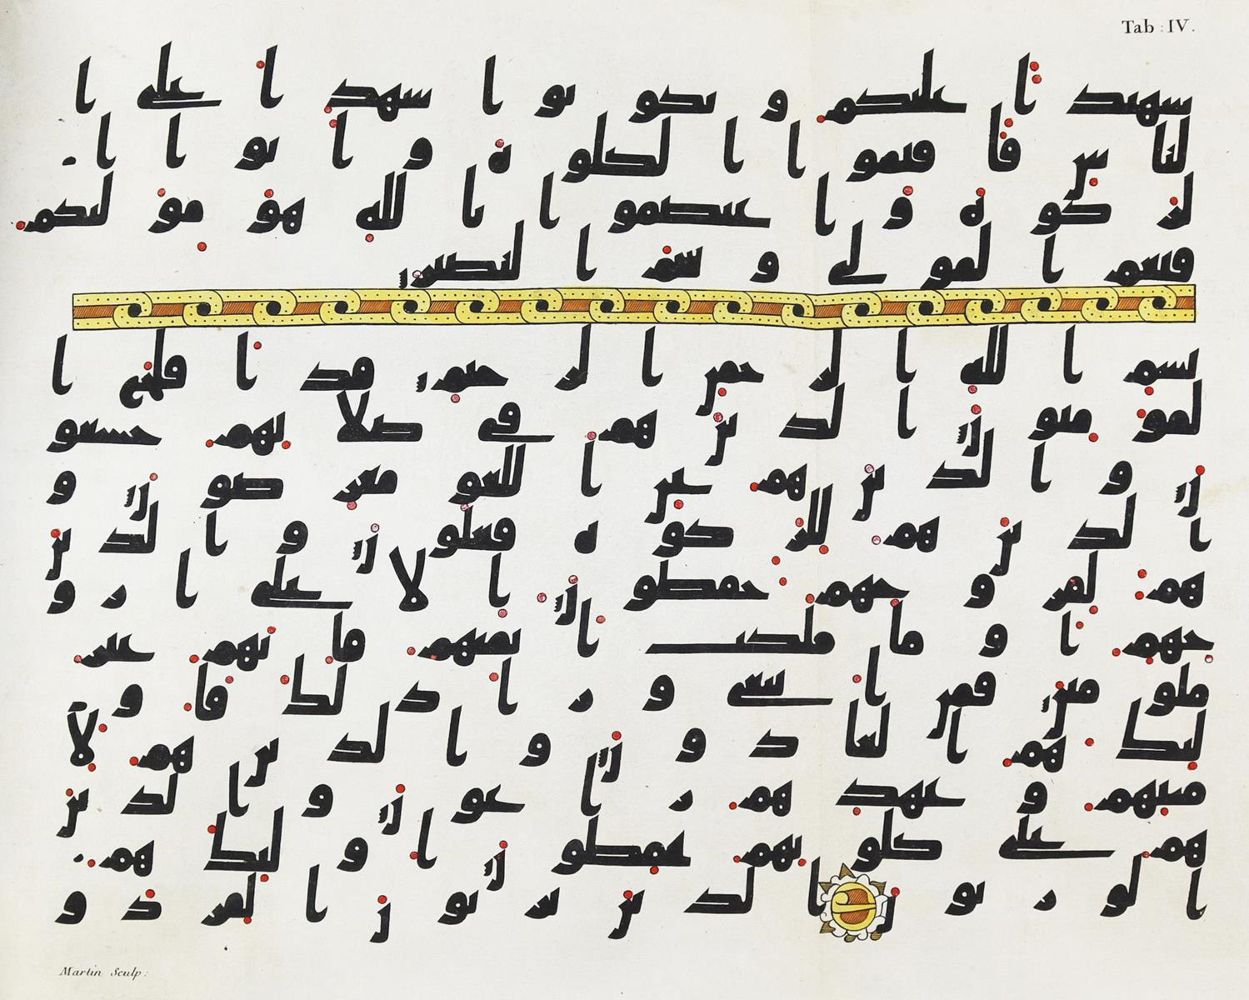 Tab : IV.
شهيدا عليكم وتكونوا شهدا علي ا
لناس فاقيموا الصلوه واتوا ا
لزكوه واعتصموا بالله هو موليكم
فنعم المولي ونعم النصير
بسم الله الرحمن الرحيم قد افلح ا
لمومنون الذين هم في صلاتهم خشعو
ن والذين هم عن اللغو معرضون و
الذين هم للزكوه فعلون والذين
هم لفروجهم حفظون الا علي ازو
جهم او ما ملكت ايمنهم فانهم غير
ملومين فمن ابتغي ورا ذلك فاو
ليك هم العادون والذين هم لا
منتهم وعهدهم راعون والذين
هم علي صلوتهم يحفظون اوليك هم
الورثون الذين يرثون الفردو
Martin Sculp: